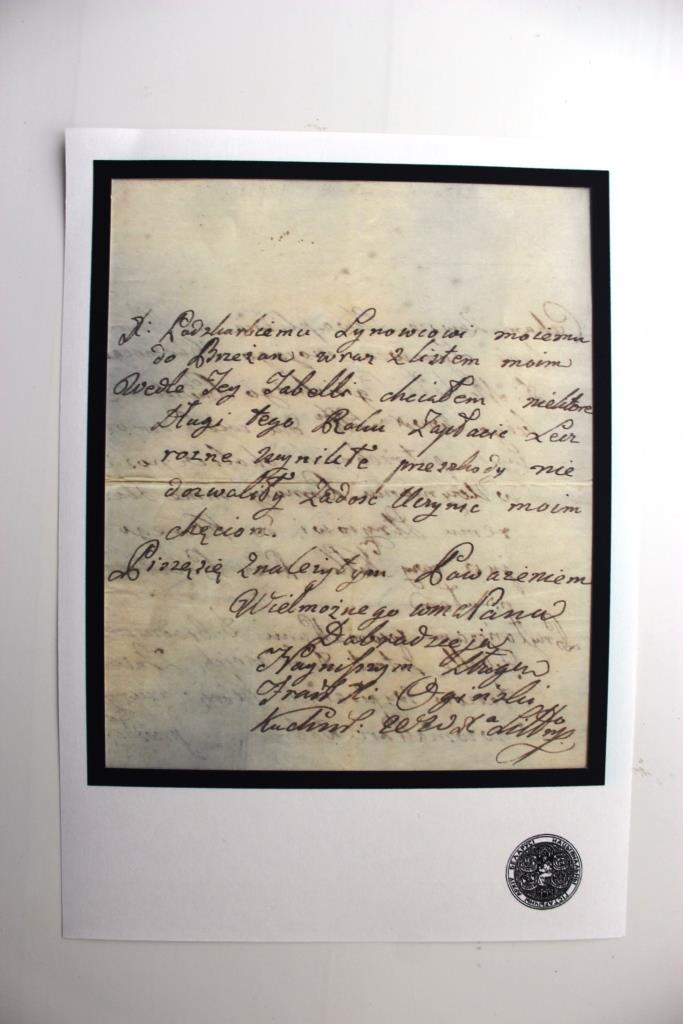 X: Podzkarbiemu Synowcowi moiemu
do Brezan wraz z listem moim
Wedle Jey Tabelli chciałem niektore
Długi tego Roku Zapłacić Lecz
rozne wynikłe przeszkody nie
dozwaliły Zadość Uczynić moim
chęciom.
Piszę się z należytym Poważeniem
Wielmożnego wm Pana
Dobrodzieja
Nayniższym Sługą
Xi Ogiński
Kuchm: WWX.a Litt